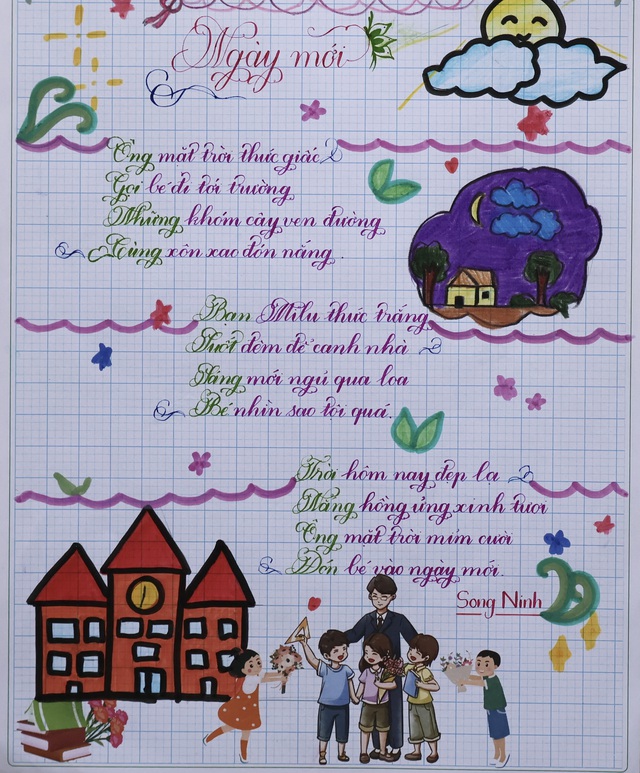 Ngày mới
Ông mặt trời thức giấc
Gọi bé đi tới trường
Những khóm cây ven đường
Cùng xôn xao đón nắng.
Bạn Milu thức trắng
Suốt đêm để canh nhà
Sáng mới ngủ qua loa
Bé nhìn sao tội quá.
Trời hôm nay đẹp lạ
Nắng hồng ửng xinh tươi
Ông mặt trời mỉm cười
Đón bé vào ngày mới.
Song Ninh